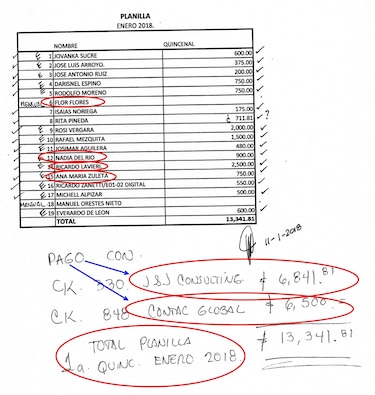 PLANILLA
ENERO 2018.
NOMBRE QUINCENAL
E 1 JOVANKA SUCRE 600.00
E 2 JOSE LUIS ARROYO. 375.00
E 3 JOSE ANTONIO RUIZ 200.00
E 4 DARISNEL ESPINO 750.00
E 5 RODOLFO MORENO 750.00
6 FLOR FLORES
7 ISAIAS NORIEGA 175.00
E 8 RITA PINEDA 711.81 ?
E 9 ROSI VERGARA 2,000.00
E 10 RAFAEL MEZQUITA 1,500.00
E 11 JOSIMAR AGUILERA 480.00
12 NADIA DEL RIO 900.00
14 RICARDO LAVIERI 2,500.00
15 ANA MARIA ZULETA 750.00
E 16 RICARDO ZANETTI/E01-02 DIGITAL 550.00
E 17 MICHELL ALPIZAR 500.00
18 MANUEL ORESTES NIETO
E 19 EVERARDO DE LEON 600.00
TOTAL 13,341.81
11-1-2018
PAGO CON.
CK. 330. J&J CONSULTING $ 6,841.81
CK. 848 CONTAC GLOBAL $ 6,500.-
TOTAL PLANILLA $ 13,341.81
1a. QUINC. ENERO 2018.